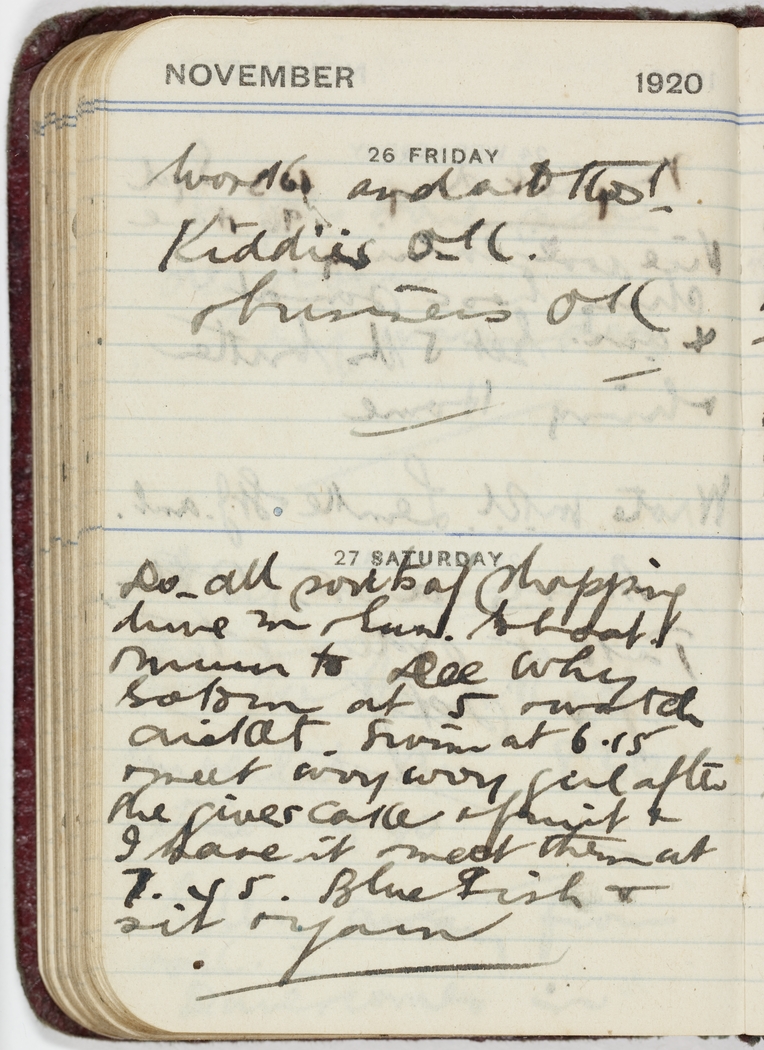 NOVEMBER 1920
26 FRIDAY
Work and at
Kiddies O.K.
business OK
27 SATURDAY
Do all sorts of shopping
to boat.
Mum to see why
at 5 watch
cricket. Swim at 6.15
meet woy woy girl after
she gives cake & fruit &
I have it meet them at
7.45. Blue Fish &
sit & yarn